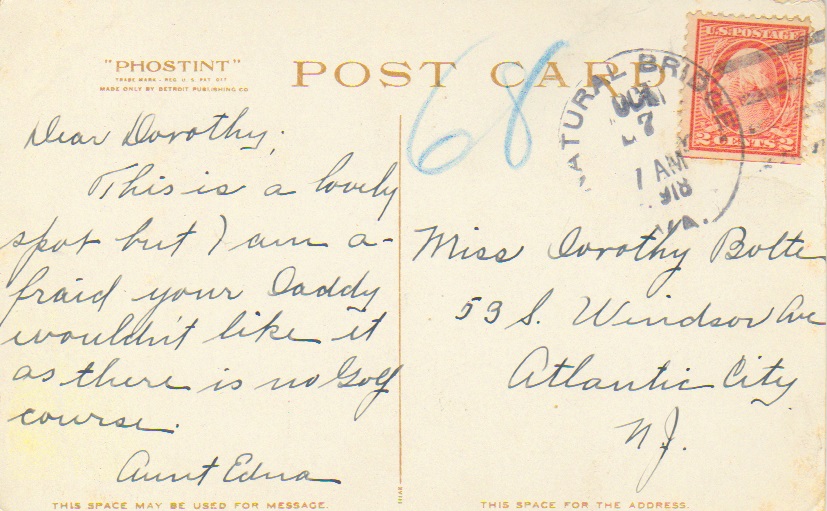 "PHOSTINT"
TRADE MARK - REG. U.S. PAT. OFF.
MADE ONLY BY DETROIT PUBLISHING CO
POST CARD
68
U.S. POSTAGE
2 CENTS 2
NATURAL BRIDGE
OCT
7
7 AM
1918
VA.
Dear Dorothy,
This is a lovely
spot but I am a-
fraid your Daddy
wouldn't like it
as there is no Golf
course.
Aunt Edna
Miss Dorothy Bolte
53 S. Windsor Ave
Atlantic City
N.J.
THIS SPACE MAY BE USED FOR MESSAGE.
THIS SPACE FOR THE ADDRESS.